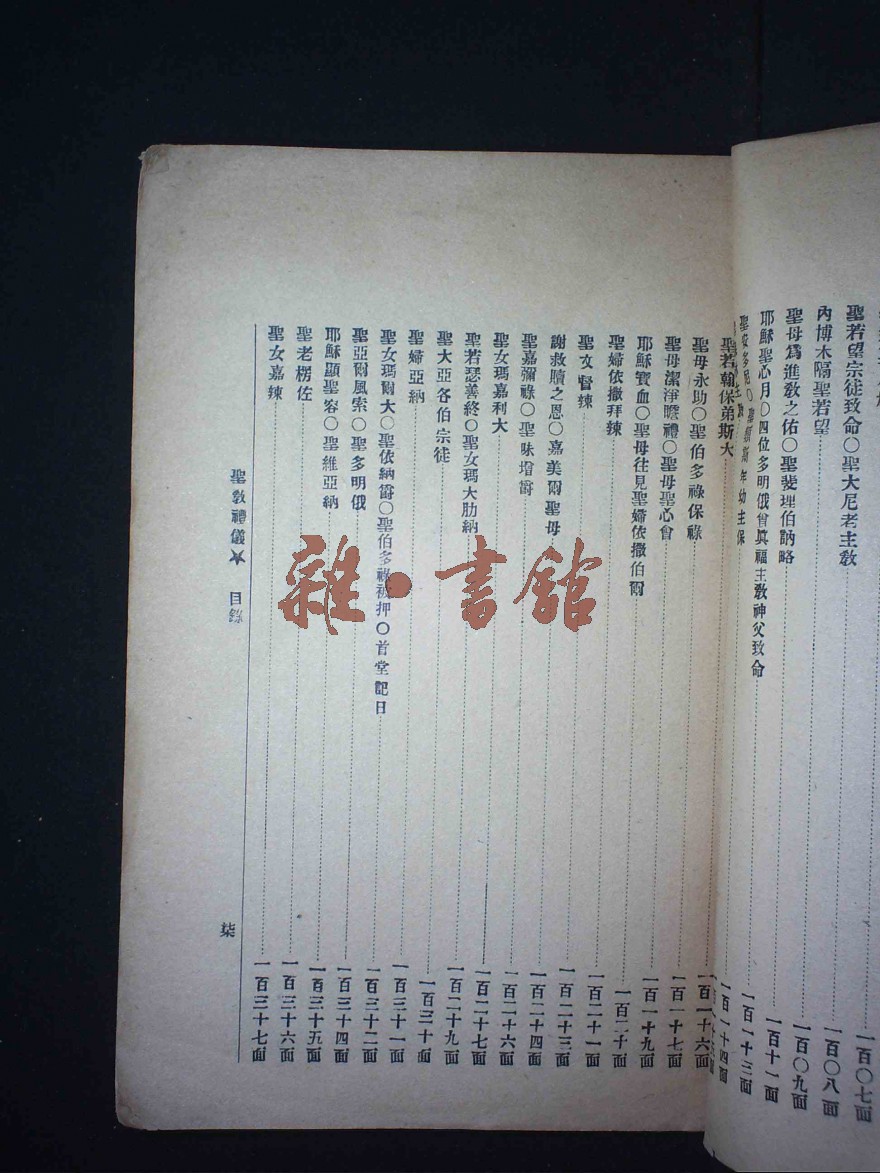 聖若望宗徒致命〇聖大尼老主敎 一百〇七面
內博木隔聖若望 一百〇八面
聖母爲進敎之佑〇聖斐理伯訥略 一百〇九面
耶穌聖心月〇四位多明俄會眞福主敎神父致命 一百十一面
聖安多尼〇聖類斯年幼主保 一百一十三面
一百一十四面
聖若翰保弟斯大 一百一十六面
聖母永助〇聖伯多祿保祿 一百一十七面
聖母潔淨瞻禮〇聖母聖心會 一百一十九面
耶穌寶血〇聖母往見聖婦依撒伯爾 一百二十面
聖婦依撒拜辣 一百二十一面
聖女督辣 一百二十三面
謝救贖之恩〇嘉美爾聖母 一百二十四面
聖嘉彌祿〇聖味增爵 一百二十六面
聖女瑪嘉利大 一百二十七面
聖若瑟善終〇聖女瑪大肋納 一百二十九面
聖大亞各伯宗徒 一百三十面
聖婦亞納 一百三十一面
聖女瑪爾大〇聖依納爵〇聖伯多祿被押〇首堂記日 一百三十二面
聖亞爾風索〇聖多明俄 一百三十四面
耶穌顯聖容〇聖維亞納 一百三十五面
聖老楞佐 一百三十六面
聖女嘉辣 一百三十七面
聖敎禮儀★ 目錄 柒
雜·書館